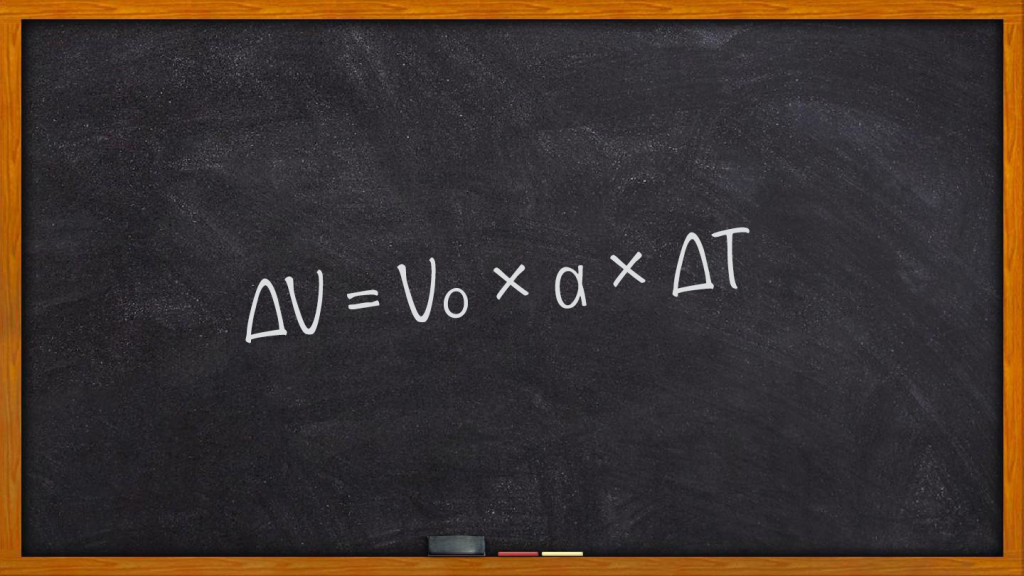 ΔV = V₀ × a × ΔT